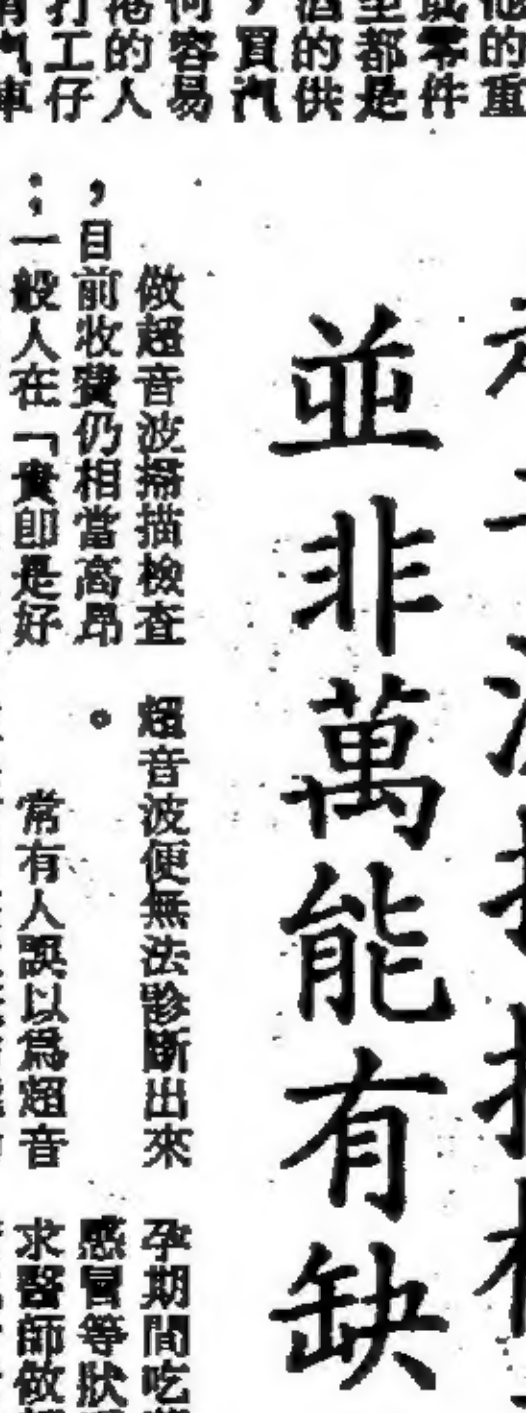 他的重
或零件
至都是
酒的供
，買汽
何容易
港的人
打工仔
汽車
並非萬能有缺
做超音波掃描檢查
，目前收費仍相當高昂
：一般人在「貴即是好
超音波便無法診斷出來
。
常有人誤以爲超音
孕期間吃
感冒等狀
求醫師做